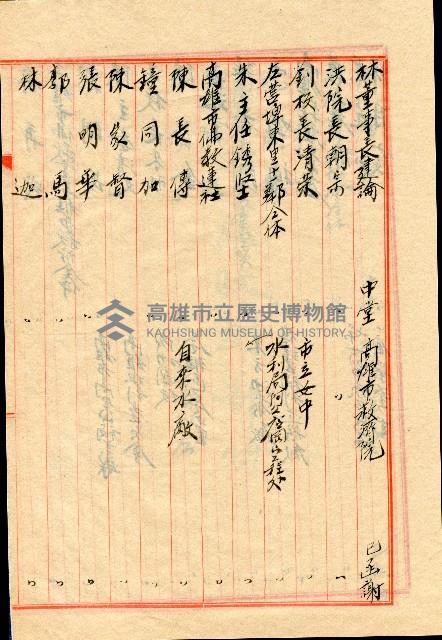 林董事長建論 中堂 高雄市救濟院 已函謝
洪院長朝宗 〃 〃 〃
劉校長清榮 〃 市立女中 〃
左營埤東里十鄰全体 〃 〃
朱主任鏽堅 〃 水利局阿公店 〃
高雄市佛教蓮社 〃 〃
陳長傳 〃 自來水廠 〃
鐘同加 〃 〃
陳象督 〃 〃
張明華 〃 〃
郭馬 〃 〃
林迦 〃 〃
高雄市立歷史博物館
KAOHSIUNG MUSEUM OF HISTORY